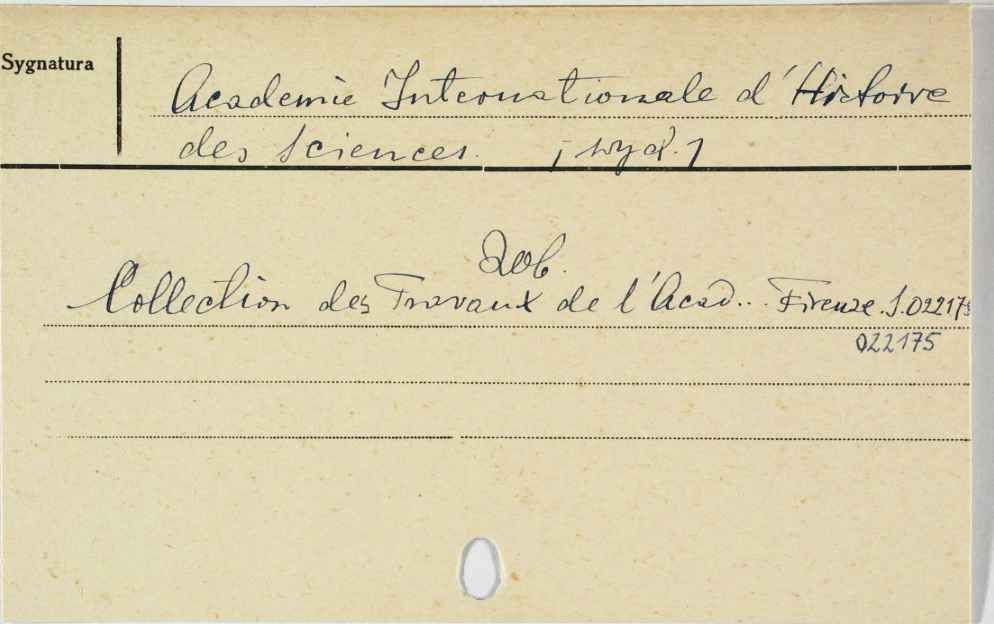 Sygnatura
Academie Internationale d'Histoire
des Sciences. [wyd.]
Zob.
Collection des Travaux de l'Acad... Firenze. S.022175
022175